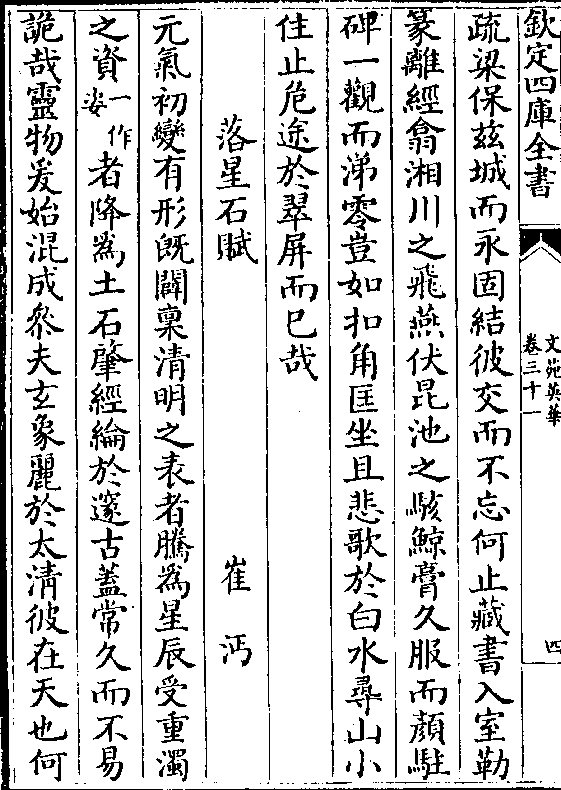 欽定四庫全書
文苑英華
卷三十一
四
疏梁保茲城而永固結彼交而不忘何止藏書入室勒
篆離經翕湘川之飛燕伏昆池之駭鯨膏久服而顏駐
碑一觀而涕零豈如扣角匡坐且悲歌於白水尋山小
住止危途於翠屏而已哉
落星石賦 崔沔
元氣初變有形既闢稟清明之表者騰為星辰受重濁
之資一作姿者降為土石肇經綸於邃古蓋常久而不易
詭哉靈物爰始混成叅夫玄象麗於太清彼在天也何